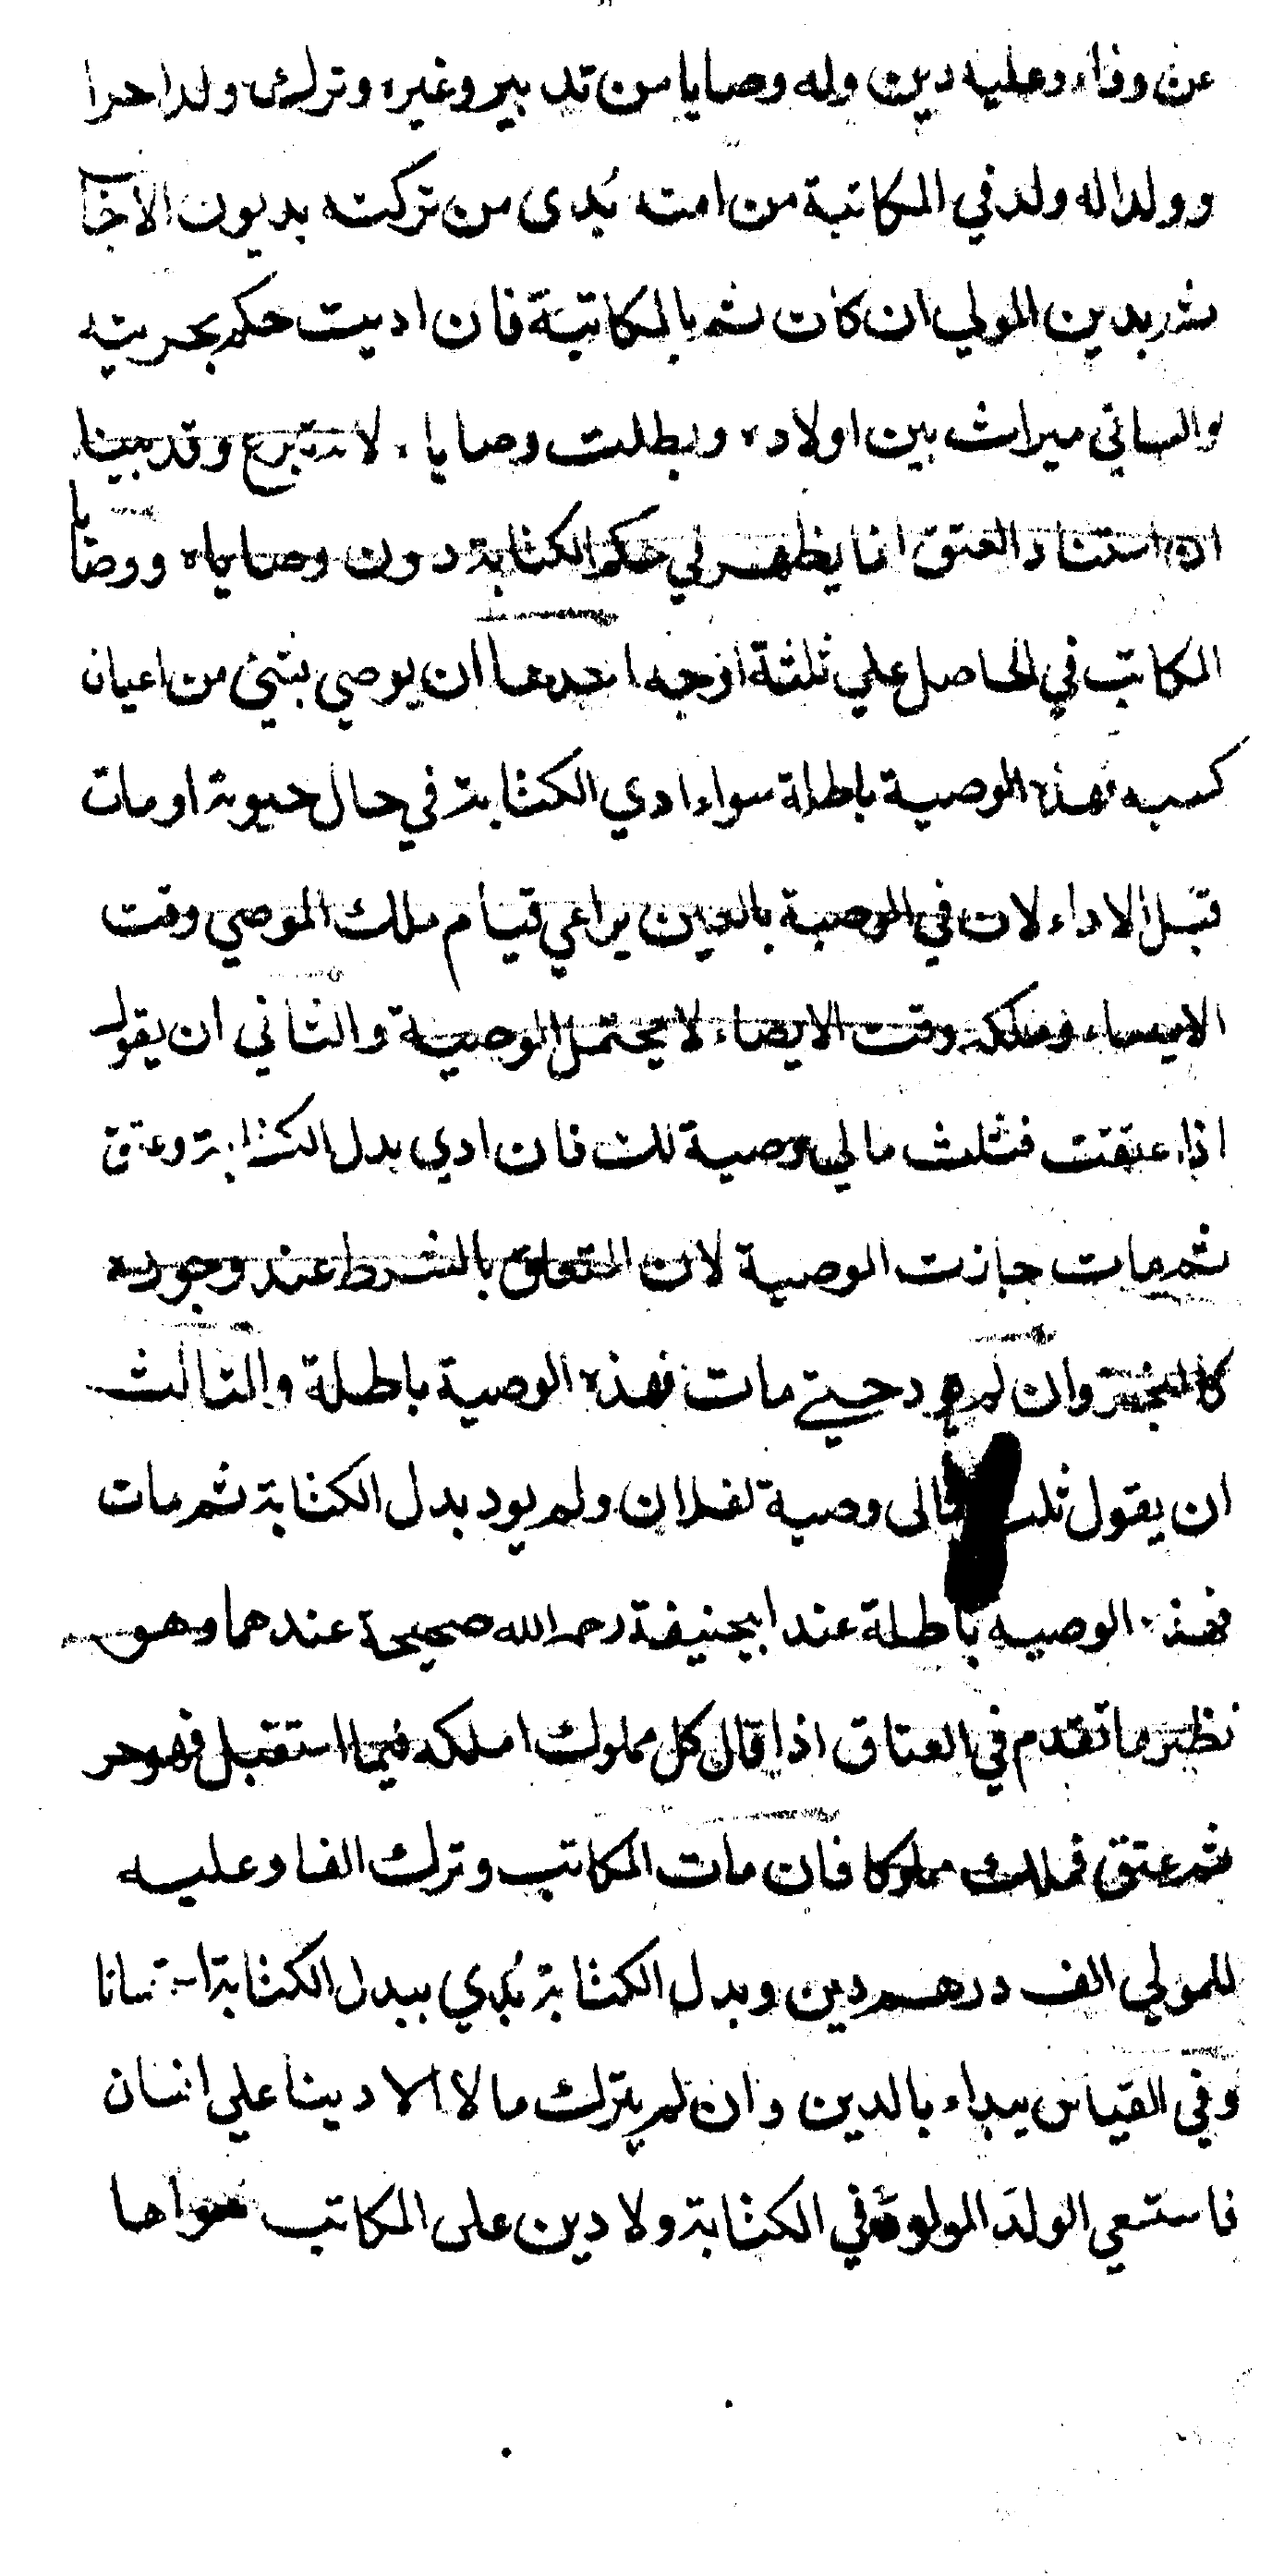 عن وفاء وعليه دين وله وصايا من تدبير وغيره وترك ولدا حرا
وولدا له ولد في المكاتبة من امته بُدى من تركته بديون الاجا
ثم بدين المولي ان كان ثم بالمكاتبة فان اديت حكم بحريته
والباقي ميراث بين اولاده وبطلت وصاياه لانه تبرع وقد بينا
ان استناد العتق انما يظهر في حكم الكتابة دون وصاياه ووصايا
المكاتب في الحاصل علي ثلثة اوجه احدها ان يوصي بشئ من اعيان
كسبه فهذه الوصية باطلة سواء ادي الكتابة في حال حيوته او مات
قبل الاداء لان في الوصية بالعين يراعي قيام ملك الموصي وقت
الايصاء وملكه وقت الايصاء لا يحتمل الوصية والثاني ان يقول
اذا عتقت فثلث مالي وصية لك فان ادي بدل الكتابة وعتق
ثم مات جازت الوصية لان المتعلق بالشرط عند وجوده
كالمنجز وان لم يود حتي مات فهذه الوصية باطلة والثالث
ان يقول ثلث مالى وصية لفلان ولم يود بدل الكتابة ثم مات
فهذه الوصيه باطلة عند ابيحنيفة رحمه الله صحيحة عندهما وهو
نظير ما تقدم في العتاق اذا قال كل مملوك املكه فيما استقبل فهو حر
ثم عتق فملك مملوكا فان مات المكاتب وترك الفا وعليه
للمولي الف درهم دين وبدل الكتابة بُدي ببدل الكتابة استحسانا
وفي القياس يبداء بالدين وان لم يترك مالا الا دينا علي انسان
فاستسعي الولد المولود في الكتابة ولا دين على المكاتب سواها